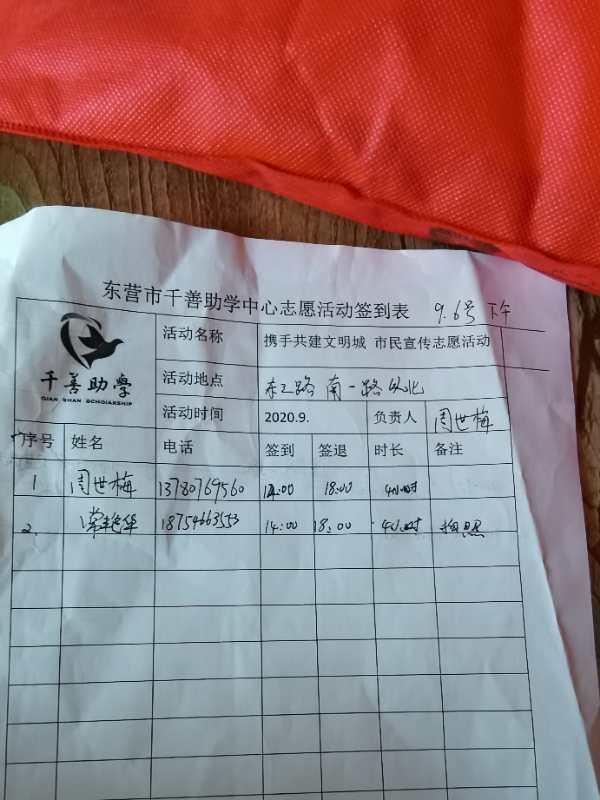 东营市千善助学中心志愿活动签到表 9.6号 下午
千善助学
QIAN SHAN SCHOLARSHIP
活动名称 携手共建文明城 市民宣传志愿活动
活动地点 东二路 南一路 以北
活动时间 2020.9. 负责人 周世梅
序号 姓名 电话 签到 签退 时长 备注
1 周世梅 13780769560 14:00 18:00 4小时
2. 常艳华 18754663553 14:00 18:00 4小时 拍照